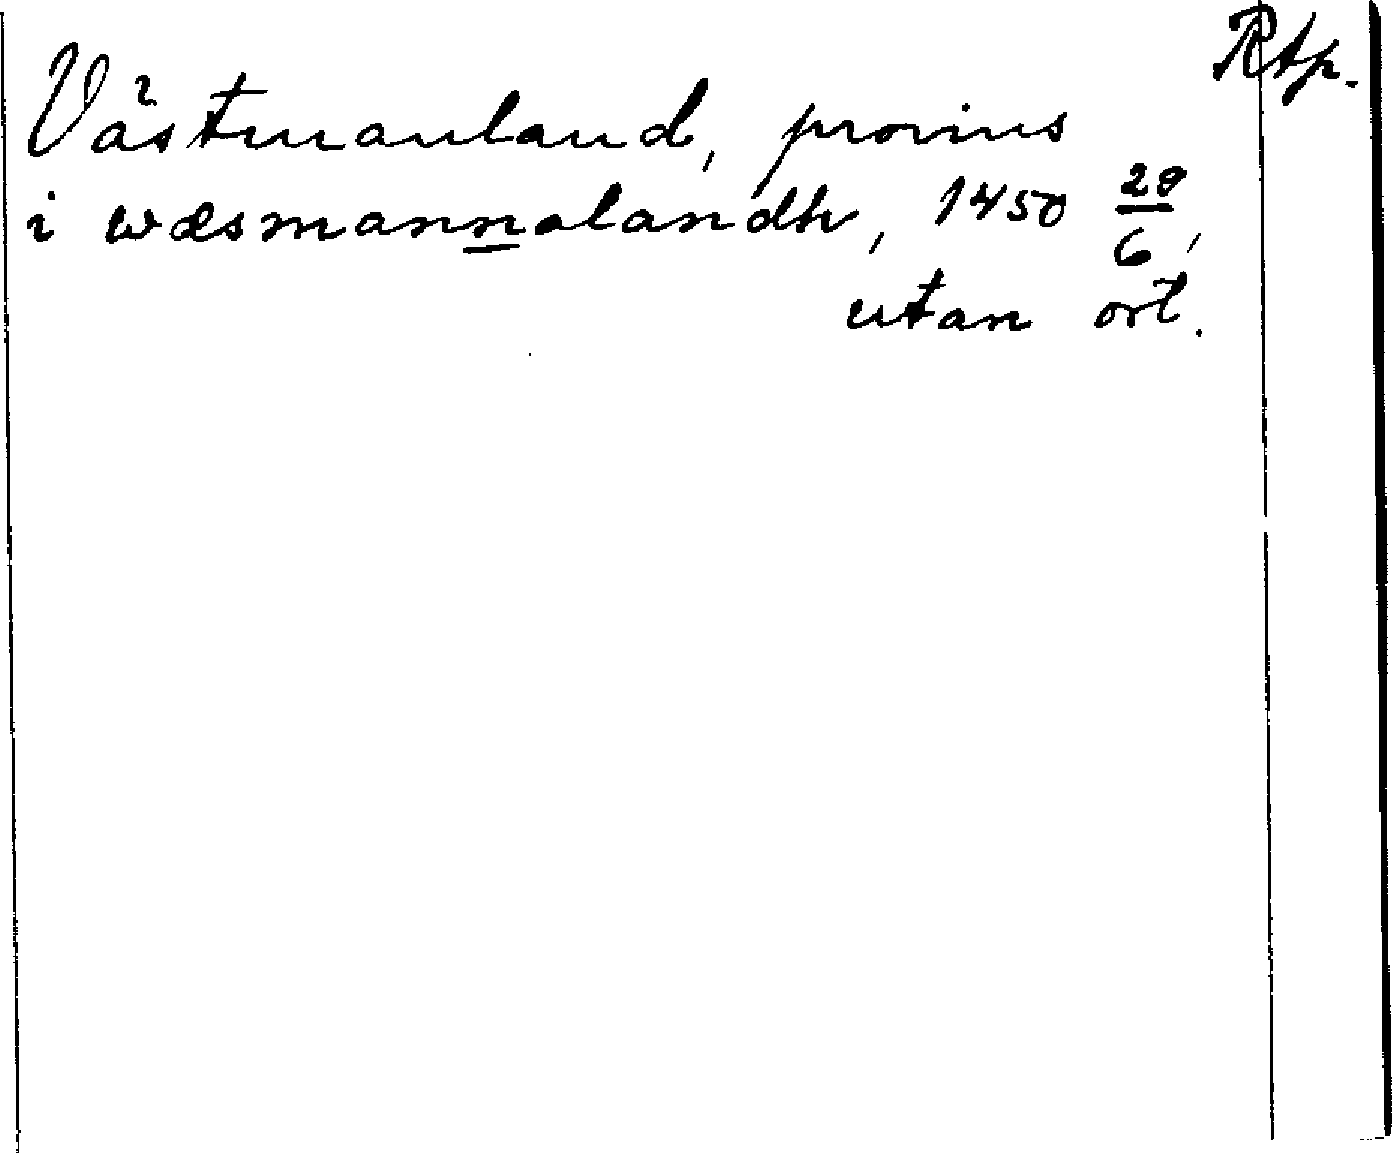 Rtp.
Västmanland, provins
i wæsmannalandh, 1450 29/6,
utan ort.